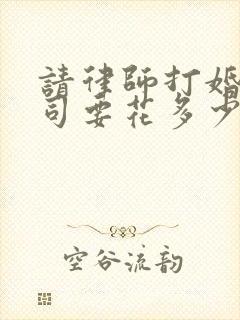 請律師打婚
司要花多少
空谷流韵